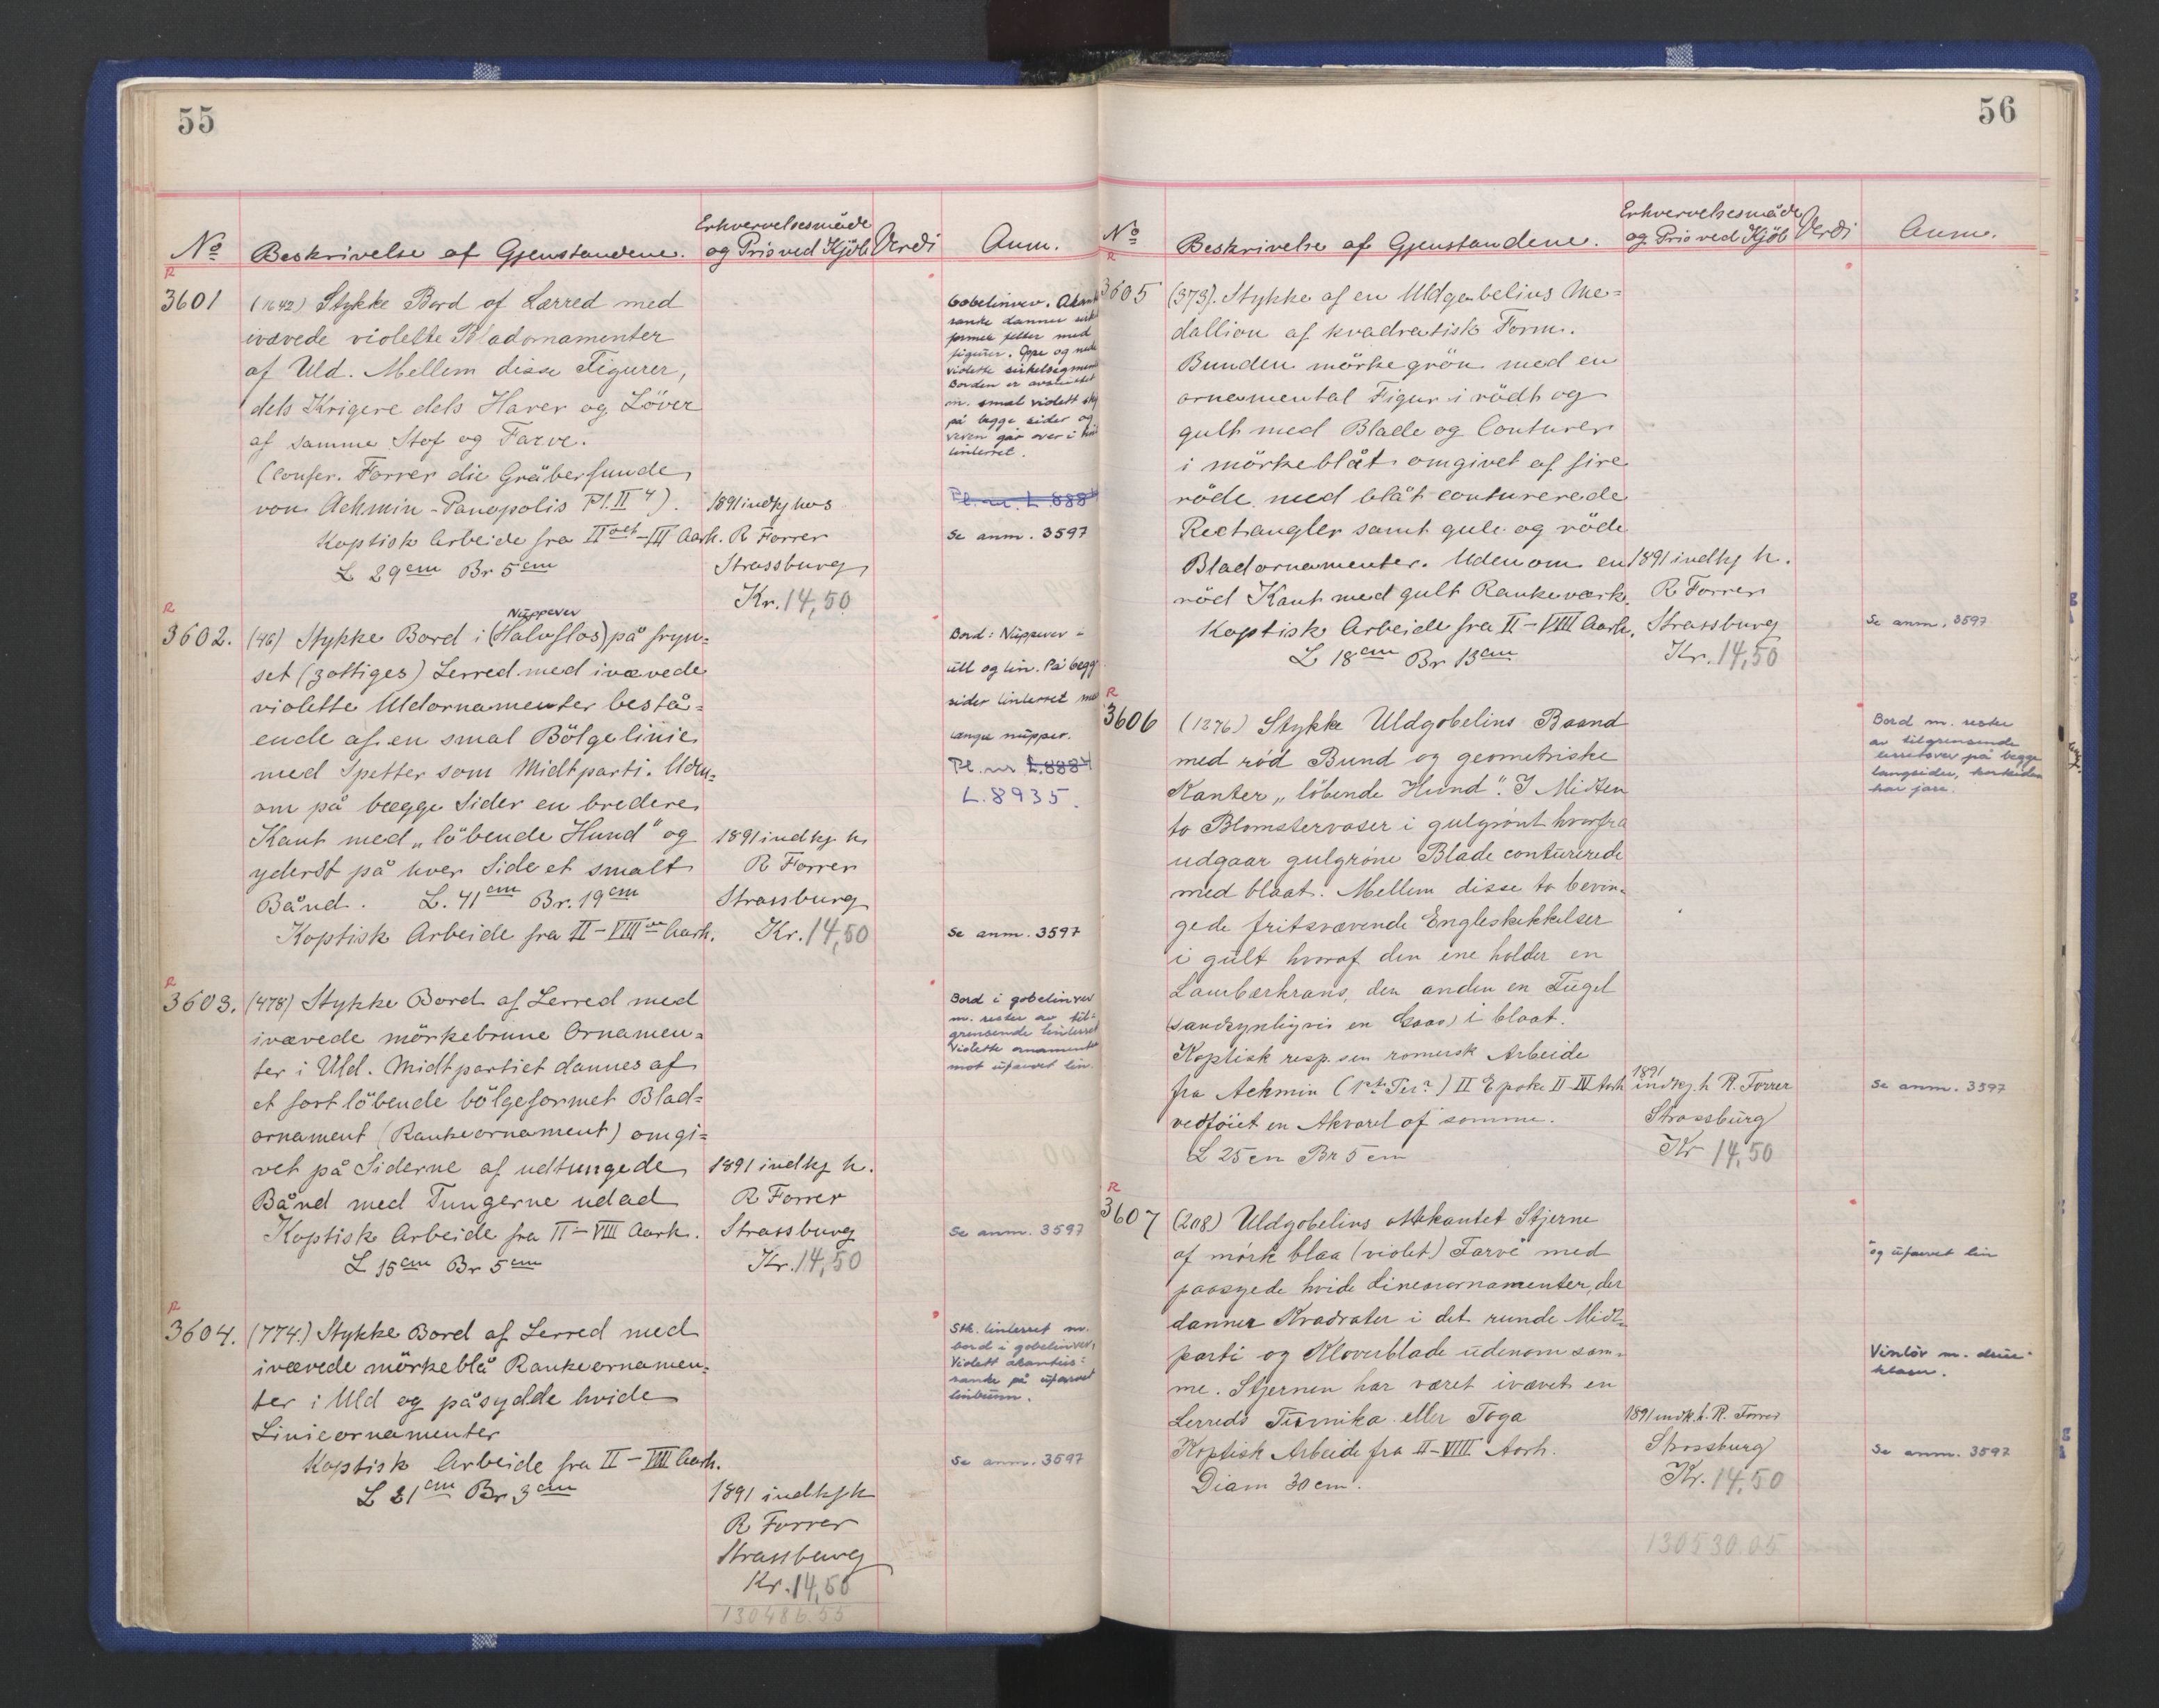 55
No Beskrivelse af Gjenstandene. Erhvervelsesmåde og Pris ved Kjöb Verdi Anm.
R
3601
(1642) Stykke Bord af Lærred med
ivævede violette Bladornamenter
af Uld. Mellem disse Figurer,
dels Krigere dels Harer og Löver
af samme Stof og Farve.
(Confer. Forrer die Gräberfunde
von Achmin-Panopolis Pl. II 4).
Koptisk Arbeide fra II det - III Aarh.
L 29 cm Br 5 cm
1891 indkj hos
R Forrer
Strassburg
Kr. 14,50
Gobelinvev.
ranke danner
former felter med
figurer. Oppe og
violette
Borden er avsluttet
m. smal violett
på begge sider og
veven går over i
linlerret.
Pl. nr. L.888
Se anm. 3597
R
3602.
Nüppevev
(46) Stykke Bord i (Halvflos) på fryn=
set (zottiges) Lerred med ivævede
violette Uldornamenter bestå=
ende af en smal Bölgelinie
med Spetter som Midtparti. Uden=
om på bægge Sider en bredere
Kant med "löbende Hund" og
yderst på hver Side et smalt
Bånd. L. 41 cm Br. 19 cm
Koptisk Arbeide fra II-VIII Aarh.
1891 indkj h
R Forrer
Strassburg
Kr. 14,50
Bord: Nüppevev i
ull og lin. På begge
sider linlerret
lange nüpper.
Pl. nr L.8884
L.8935.
Se anm. 3597
R
3603.
(478) Stykke Bord af Lerred med
ivævede mörkebrune Ornamen=
ter i Uld. Midtpartiet dannes af
et fortlöbende bölgeformet Blad=
ornament (Rankeornament) omgi=
vet på Siderne af udtungede
Bånd med Tungerne udad
Koptisk Arbeide fra II-VIII Aarh.
L 15 cm Br 5 cm
1891 indkj h.
R Forrer
Strassburg
Kr. 14,50
Bord i gobelinvev
m. rester av til=
grensende linlerret
Violette ornamenter
mot ufarvet lin.
Se anm. 3597
R
3604.
(774.) Stykke Bord af Lerred med
ivævede mörkeblå Rankeornamen=
ter i Uld og påsydde hvide
Linieornamenter
Koptisk Arbeide fra II-VIII Aarh.
L 21 cm Br 3 cm
1891 indkj h
R Forrer
Strassburg
Kr. 14,50
130486.55
Stk. linlerret m.
bord i gobelinvev,
Violett akantus=
ranke på ufarvet
linbunn.
Se anm. 3597
56
No Beskrivelse af Gjenstandene. Erhvervelsesmåde og Pris ved Kjöb Verdi Anm.
R
3605
(373). Stykke af en Uldgobelins Me=
dallion af kvadratisk Form.
Bunden mörkegrön med en
ornamental Figur i rödt og
gult med Blade og Conturer
i mörkeblåt omgivet af fire
röde med blåt conturerede
Rectangler samt gule og röde
Bladornamenter. Udenom en
röd Kant med gult Rankeværk.
Koptisk Arbeide fra II-VIII Aarh.
L 18 cm Br 13 cm
1891 indkj h.
R Forrer
Strassburg
Kr. 14,50
Se anm. 3597
R
3606
(1376) Stykke Uldgobelins Baand
med rød Bund og geometriske
Kanter "löbende Hund". I Midten
to Blomstervaser i gulgrönt hvorfra
udgaar gulgröne Blade conturerede
med blaat. Mellem disse to bevin=
gede fritsvævende Engleskikkelser
i gult hvoraf den ene holder en
Laurbærkrans, den anden en Fugel
(sandsynligvis en Gaas) i blaat.
Koptisk resp. sen romersk Arbeide
fra Achmin II Epoke II-IV Aarh
vedføiet en Akvarel af samme.
L 25 cm Br 5 cm
1891
indkj. h R. Forrer
Strassburg
Kr 14,50
Bord m. rester
av tilgrensende
lerretsvev på begge
langsider, kortsiden
har jare.
Se anm. 3597
R
3607
(208) Uldgobelins ottekantet Stjerne
af mörk blaa (violet) Farve med
paasyede hvide Lineaornamenter, der
danner Kvadrater i det runde Midt=
parti og Kløverblade udenom sam=
me. Stjernen har været ivævet en
Lerreds Tunika eller Toga
Koptisk Arbeide fra II-VIII Aarh.
Diam 30 cm.
1891 indk. h. R. Forrer
Strassburg
Kr. 14,50
130530.05
og ufarvet lin
Vinlöv m. drue-
klaser.
Se anm. 3597